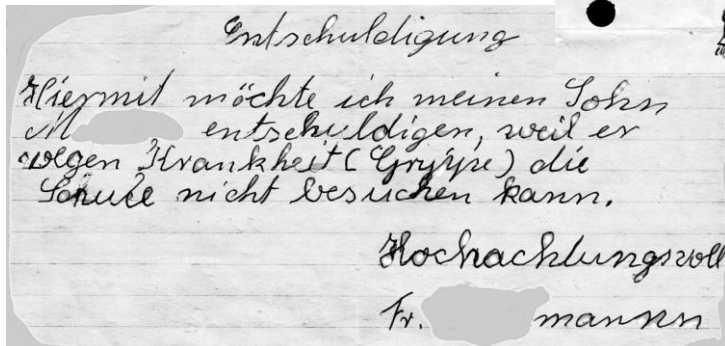 Entschuldigung
Hiermit möchte ich meinen Sohn
M entschuldigen, weil er
wegen Krankheit (Grippe) die
Schule nicht besuchen kann.
Hochachtungsvoll
Fr. mann